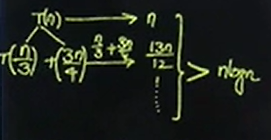 T(n) → n
T(n/3) T(3n/4) n/3 + 3n/4 → 13n/12 > nlogn